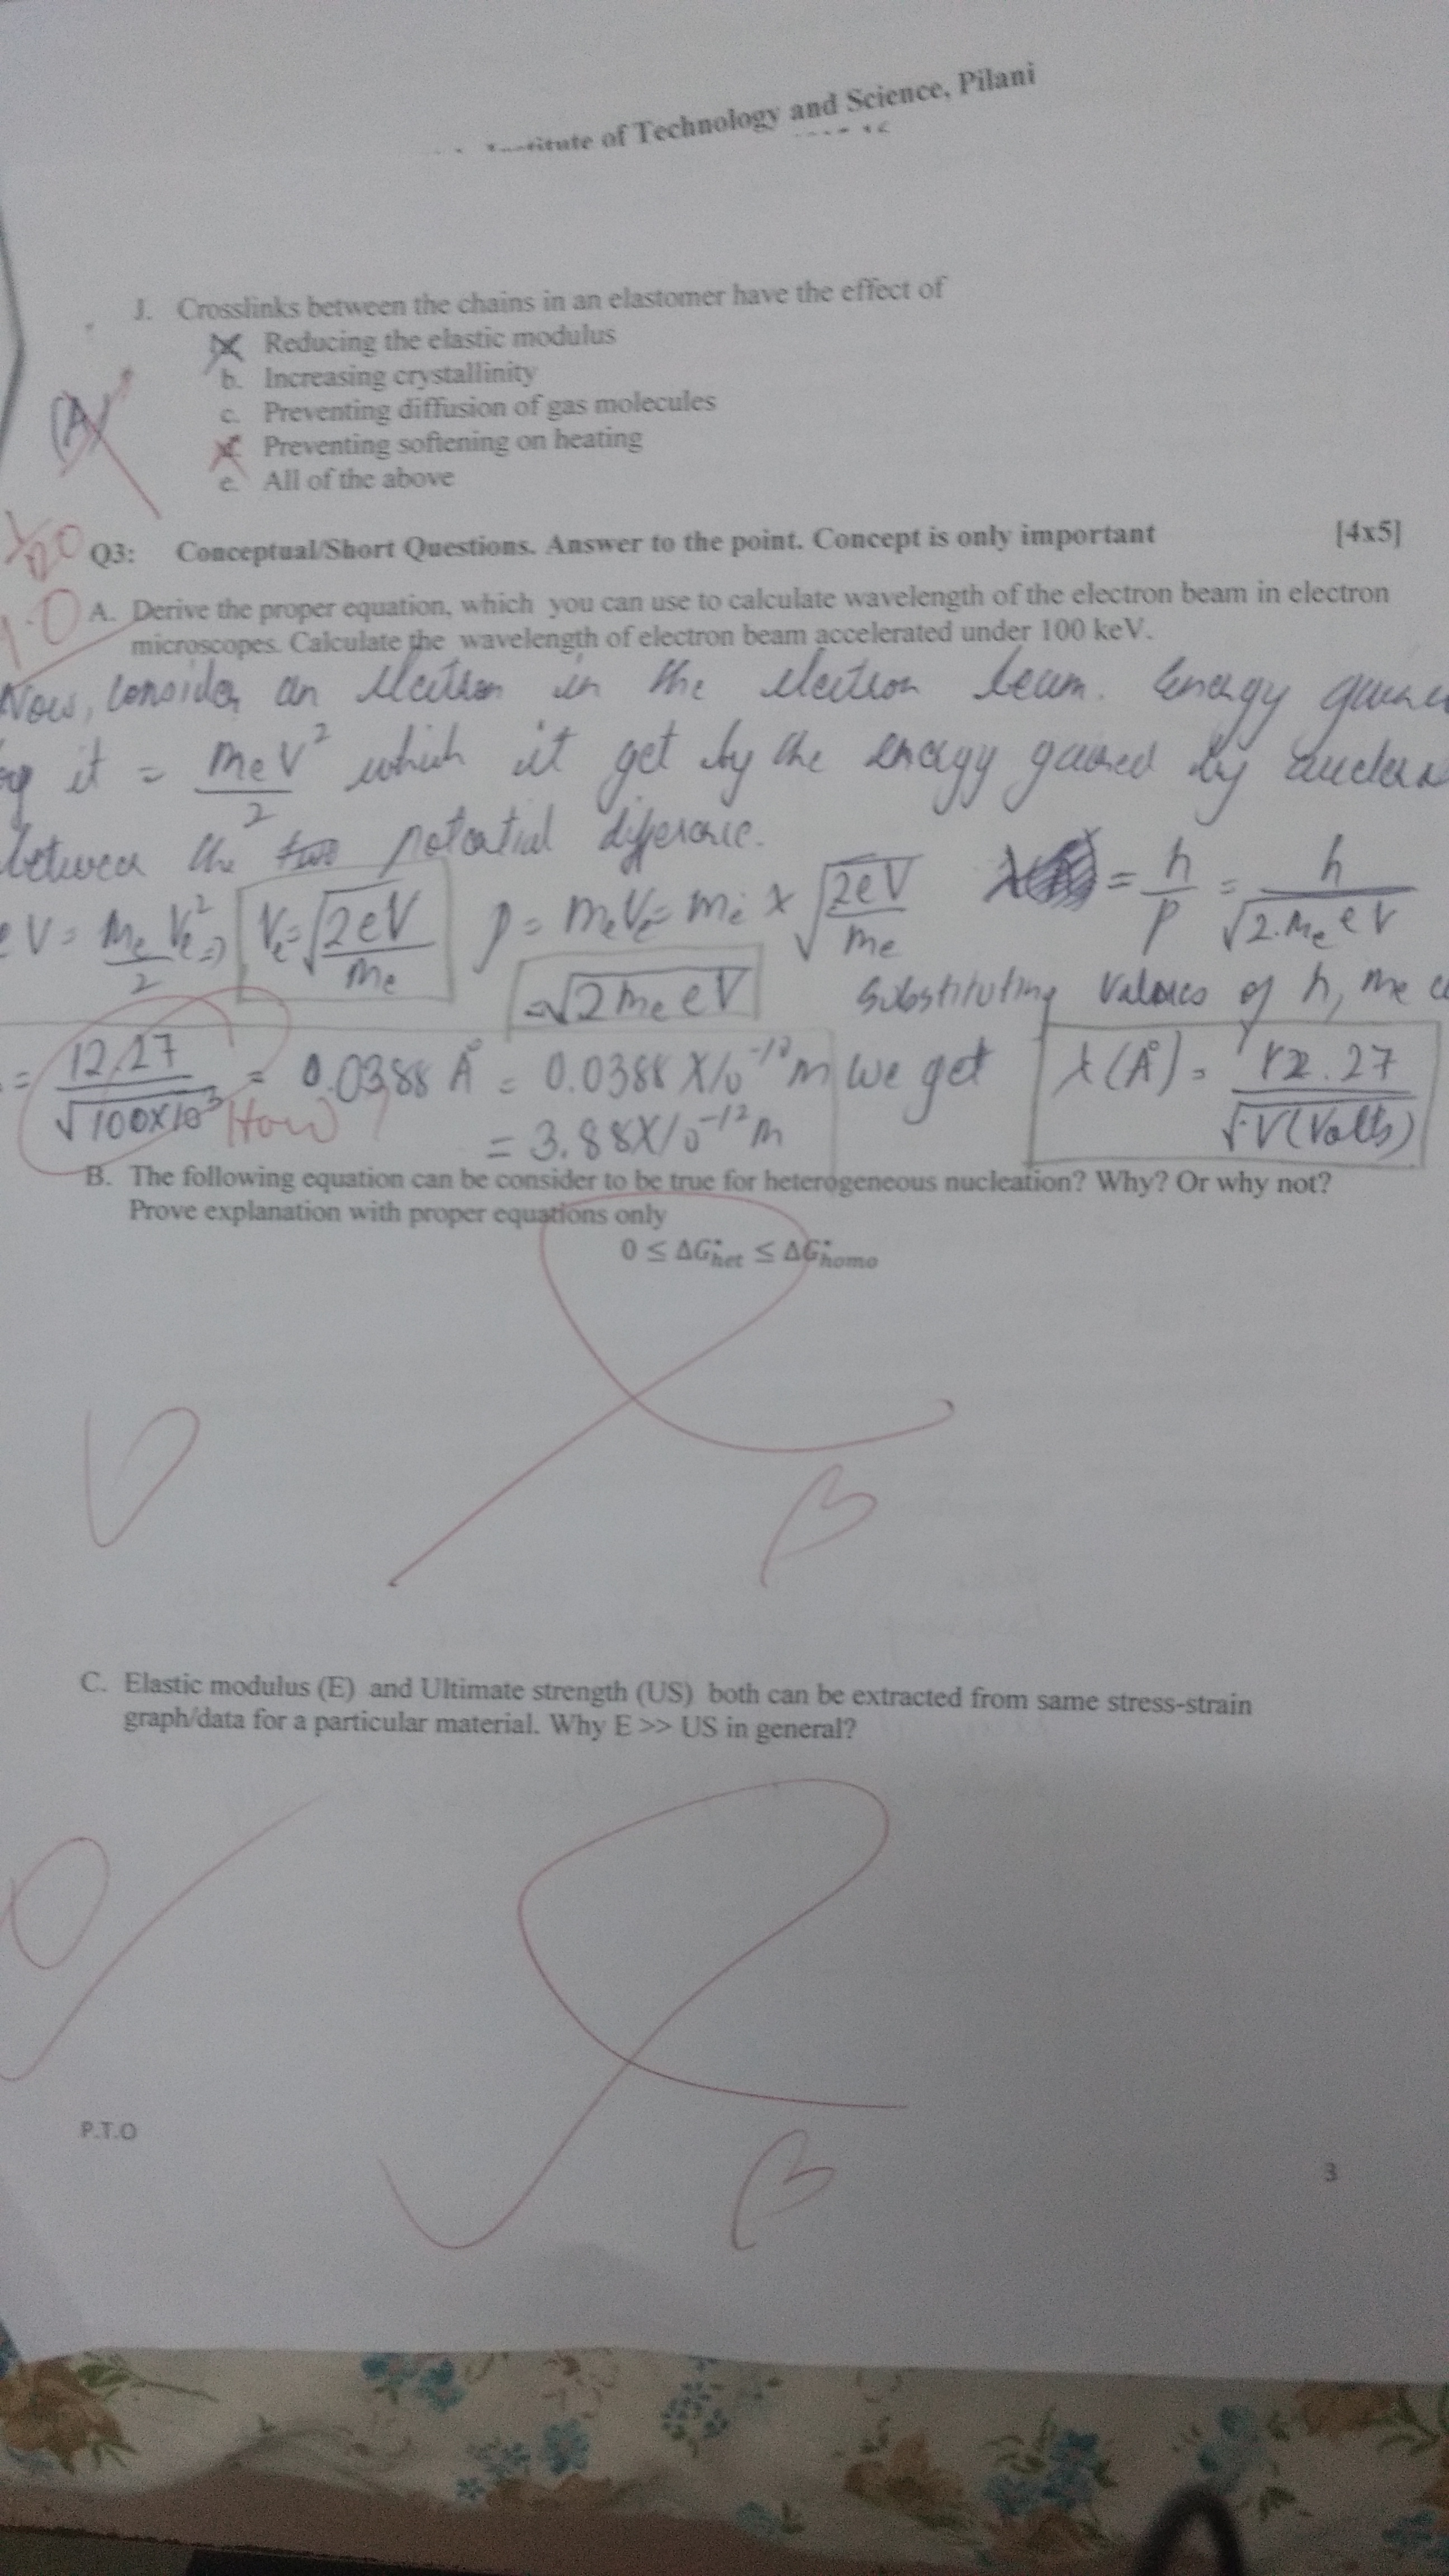 Institute of Technology and Science, Pilani
J. Crosslinks between the chains in an elastomer have the effect of
Reducing the elastic modulus
b. Increasing crystallinity
c. Preventing diffusion of gas molecules
(A)
Preventing softening on heating
e. All of the above
Q3: Conceptual/Short Questions. Answer to the point. Concept is only important [4x5]
A. Derive the proper equation, which you can use to calculate wavelength of the electron beam in electron
microscopes. Calculate the wavelength of electron beam accelerated under 100 keV.
Now, consider an electron in the electron beam. Energy
it = meV²/2 which it get by the energy gained by
between the potential difference.
eV = me Ve²/2 => Ve = √(2eV/me) p = meVe = me × √(2eV/me) = h/p = h/√(2.me eV)
= √(2 me eV) Substituting values of h, me
= 12.27/√(100×10³) = 0.0388 Å = 0.0388 X 10⁻¹⁰ m we get λ(Å) = 12.27/√V(Volts)
How?
= 3.88X10⁻¹² m
B. The following equation can be consider to be true for heterogeneous nucleation? Why? Or why not?
Prove explanation with proper equations only
0 ≤ ΔG*het ≤ ΔG*homo
C. Elastic modulus (E) and Ultimate strength (US) both can be extracted from same stress-strain
graph/data for a particular material. Why E >> US in general?
0
P.T.O
3